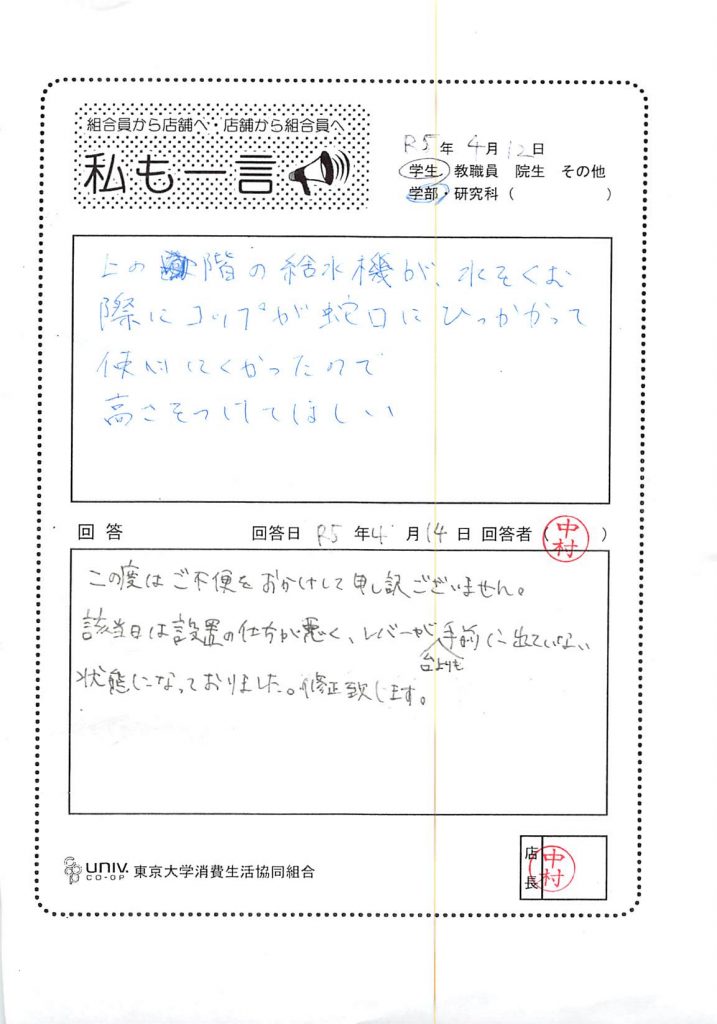 組合員から店舗へ・店舗から組合員へ
私も一言
R5年 4月12日
学生 教職員 院生 その他
学部・研究科( )
上の 階の給水機が、水をくむ
際にコップが蛇口にひっかかって
使いにくかったので
高さをつけてほしい
回答 回答日 R5 年 4 月 14 日 回答者 (中村)
この度はご不便をおかけして申し訳ございません。
該当日は設置の仕方が悪く、レバーが台よりも手前に出ていない
状態になっておりました。修正致します。
UNIV. CO-OP 東京大学消費生活協同組合
店長 中村